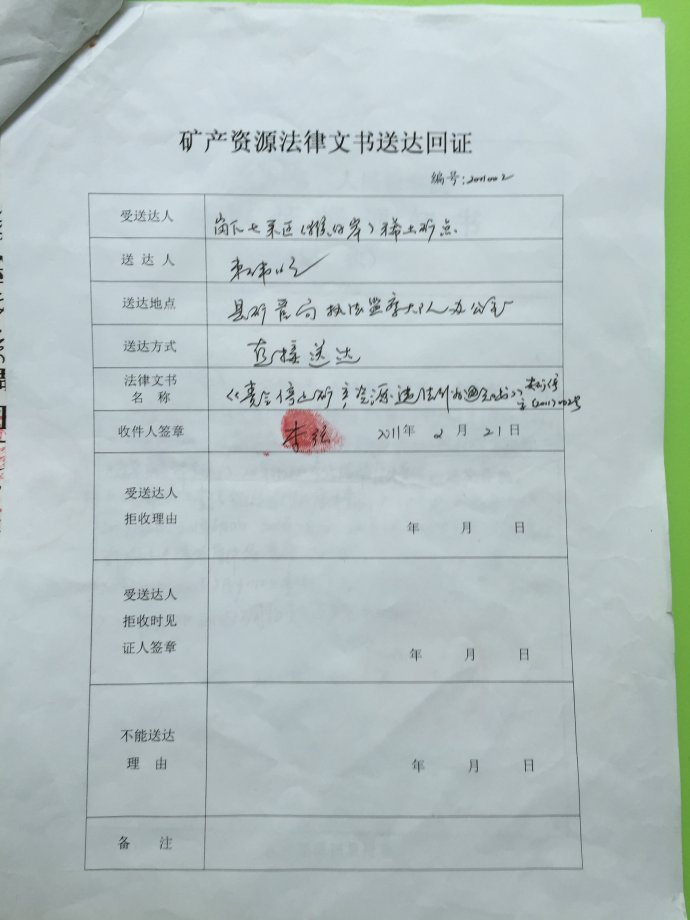 矿产资源法律文书送达回证
编号:2011002
受送达人
岗下七采区( )稀土矿点
送 达 人
送达地点
县矿管局执法监察大队办公室
送达方式
直接送达
法律文书
名 称
《责令停止矿产资源违法行为通知书》
(2011)002号
收件人签章
2011年 2 月 21 日
受送达人
拒收理由
年 月 日
受送达人
拒收时见
证人签章
年 月 日
不能送达
理 由
年 月 日
备 注